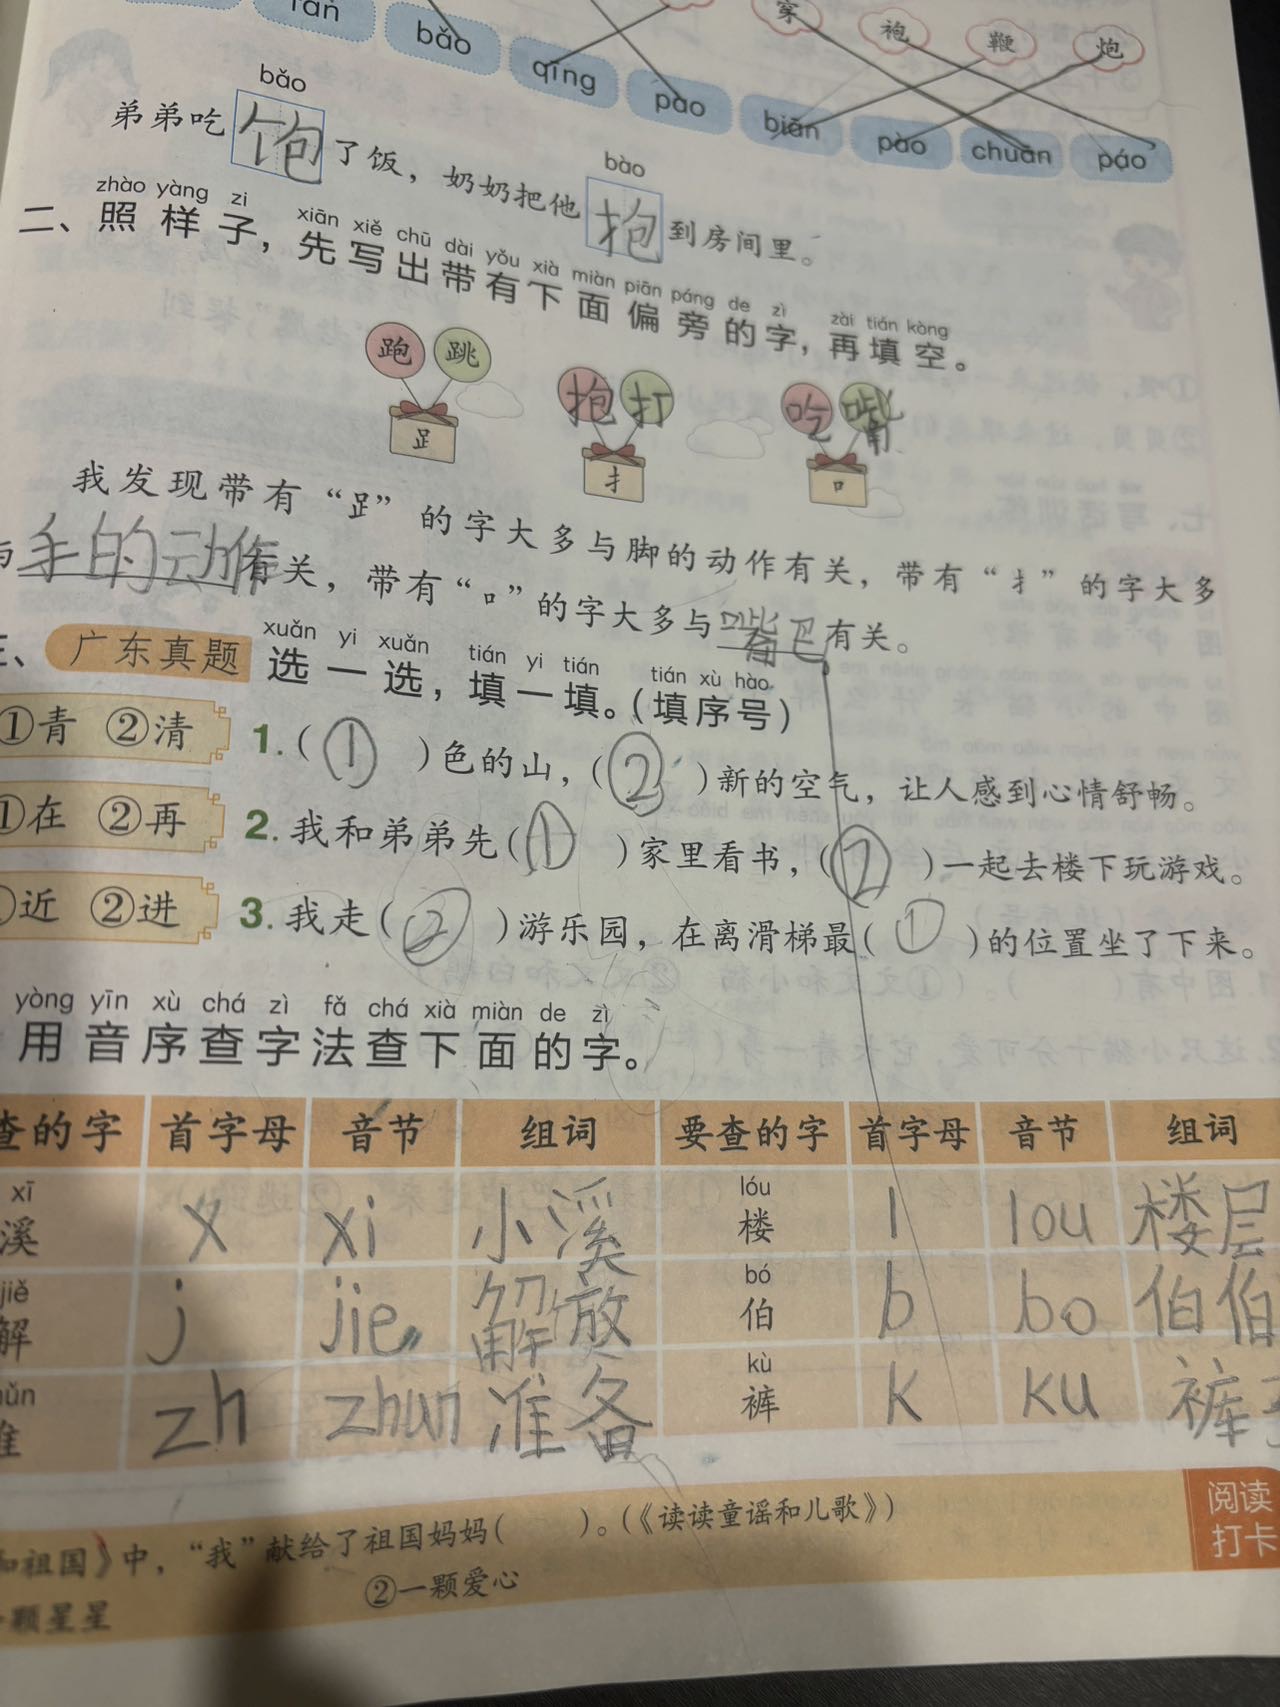 bǎo qīng pào biān pào chuān páo
穿 袍 鞭 炮
bǎo
bào
弟弟吃饱了饭，奶奶把他抱到房间里。
zhào yàng zi xiān xiě chū dài yǒu xià miàn piān páng de zì zài tián kòng
二、照样子，先写出带有下面偏旁的字，再填空。
跑 跳 抱 打 吃 嘴
𧾷 扌 口
我发现带有“𧾷”的字大多与脚的动作有关，带有“扌”的字大多
与手的动作有关，带有“口”的字大多与嘴巴有关。
xuǎn yi xuǎn tián yi tián tián xù hào
三、广东真题 选一选，填一填。（填序号）
①青 ②清 1.（①）色的山，（②）新的空气，让人感到心情舒畅。
①在 ②再 2.我和弟弟先（①）家里看书，（②）一起去楼下玩游戏。
①近 ②进 3.我走（②）游乐园，在离滑梯最（①）的位置坐了下来。
yòng yīn xù chá zì fǎ chá xià miàn de zì
用音序查字法查下面的字。
查的字 首字母 音节 组词 要查的字 首字母 音节 组词
xī lóu
溪 x xi 小溪 楼 l lou 楼层
jiě bó
解 j jie 解放 伯 b bo 伯伯
kù
准 zh zhun 准备 裤 k ku 裤子
和祖国》中，“我”献给了祖国妈妈（ ）。（《读读童谣和儿歌》）
颗星星 ②一颗爱心
阅读
打卡